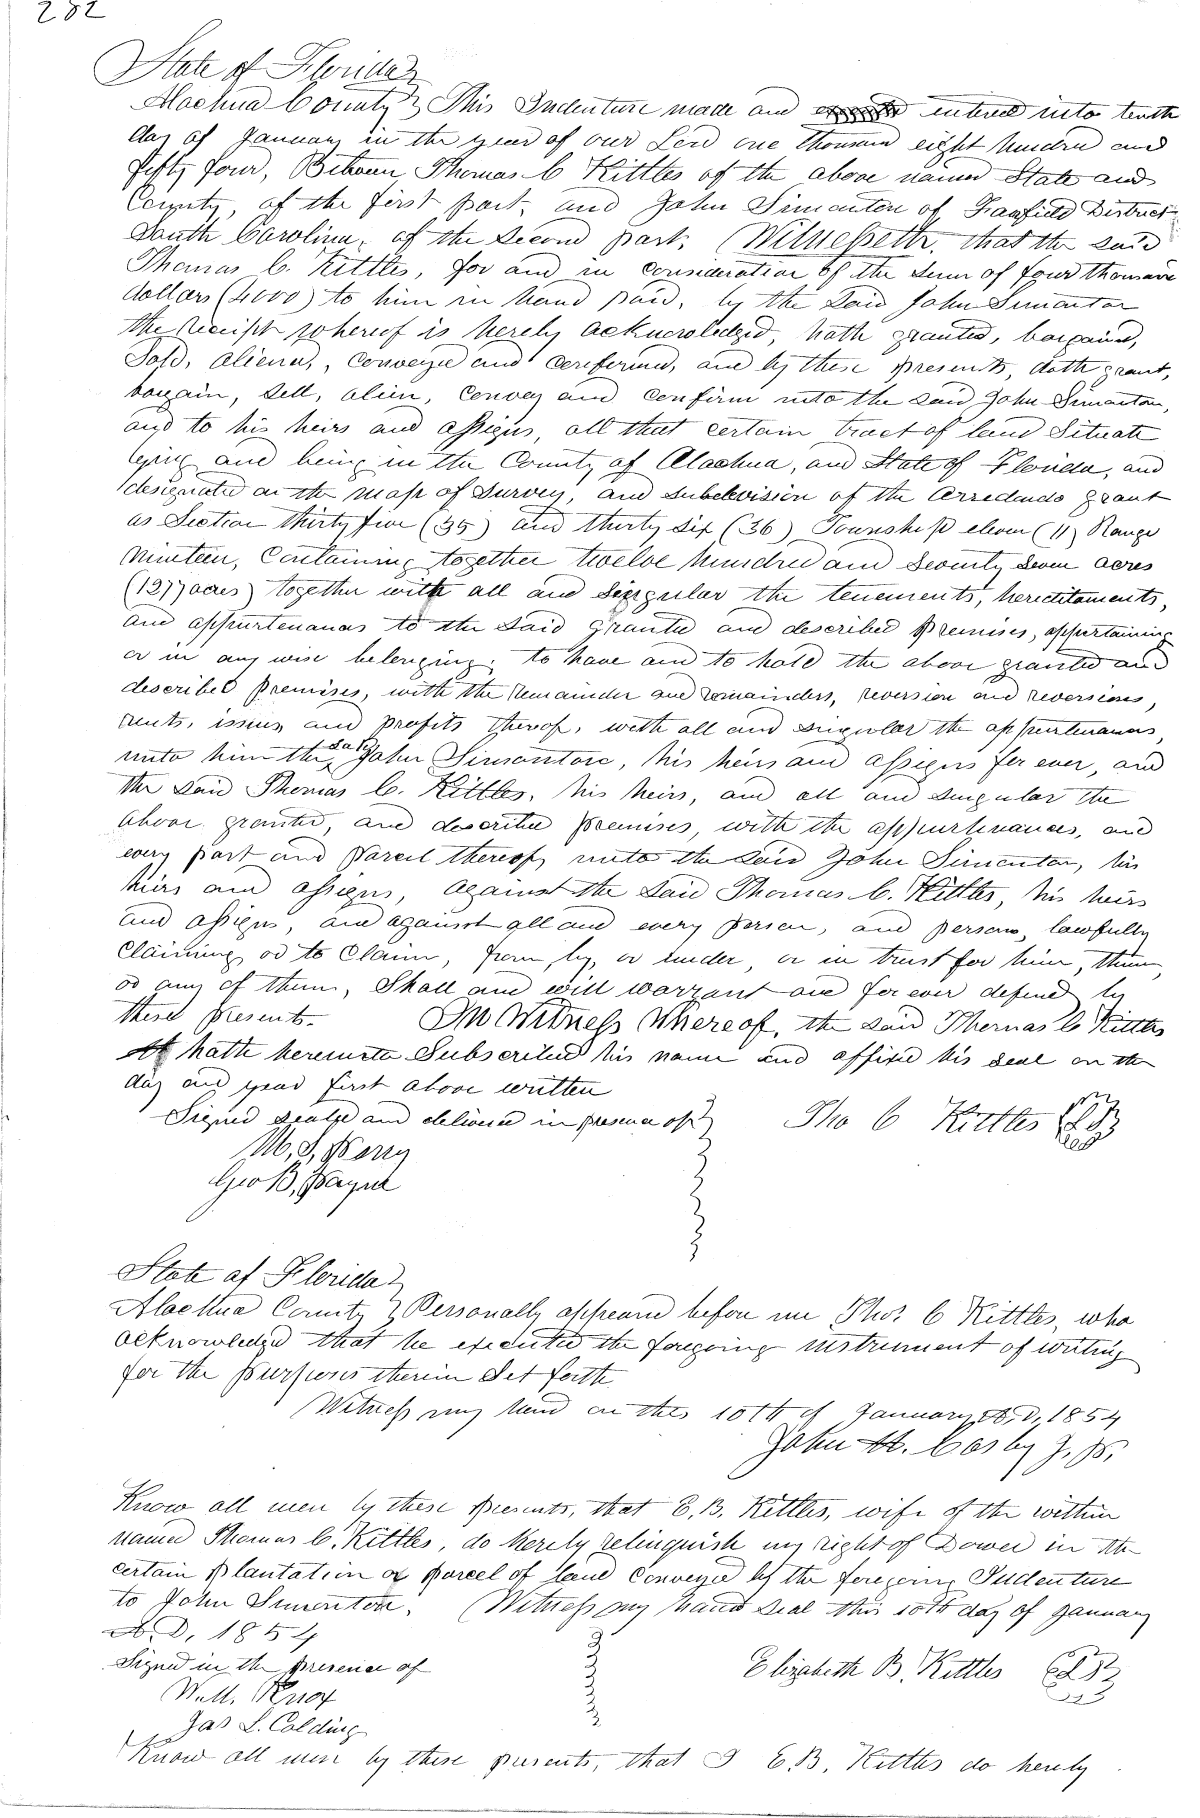 282
State of Florida
Alachua County This Indenture made and entered into tenth
day of January in the year of our Lord one thousand eight hundred and
fifty four, Between Thomas C Kittles of the above named State and
County, of the first part, and John Simonton of Fairfield District
South Carolina, of the Second part, Witnesseth, that the said
Thomas C. Kittles, for and in consideration of the sum of four thousand
dollars (4000) to him in hand paid, by the Said John Simonton
the receipt whereof is hereby acknowledged, hath granted, bargained,
Sold, aliened, conveyed and confirmed, and by these presents, doth grant,
bargain, sell, alien, convey and confirm unto the said John Simonton,
and to his heirs and assigns, all that certain tract of land Situate
lying and being in the County of Alachua, and State of Florida, and
designated on the map of survey, and subdivision of the Arredondo grant
as Section thirty five (35) and thirty six (36) Township eleven (11) Range
nineteen, Containing together twelve hundred and seventy seven acres
(1277 acres) together with all and singular the tenements, hereditaments,
and appurtenances to the said granted and described premises, appertaining
or in any wise belonging, to have and to hold the above granted and
described premises, with the remainder and remainders, reversion and reversions,
rents, issues and profits thereof, with all and singular the appurtenances,
unto him the said John Simonton, his heirs and assigns for ever, and
the said Thomas C. Kittles, his heirs, and all and singular the
above granted, and described premises, with the appurtenances, and
every part and parcel thereof, unto the said John Simonton, his
heirs and assigns, against the said Thomas C. Kittles, his heirs
and assigns, and against all and every person, and persons, lawfully
claiming or to claim, from, by, or under, or in trust for him, them,
or any of them, Shall and will warrant and forever defend by
these presents. In Witness Whereof, the said Thomas C Kittles
hath hereunto Subscribed his name and affixed his seal on the
day and year first above written
Signed sealed and delivered in presence of Tho C Kittles LS
M, S, Perry
Geo B, Payne
State of Florida
Alachua County Personally appeared before me Thos C Kittles, who
acknowledged that he executed the foregoing instrument of writing
for the purposes therein Set forth
Witness my hand on this 10th of January A.D. 1854
John H. Cosby J. P.
Know all men by these presents, that E. B. Kittles, wife of the within
named Thomas C. Kittles, do hereby relinquish my right of Dower in the
certain plantation or parcel of land conveyed by the foregoing Indenture
to John Simonton. Witness my hand seal this 10th day of January
A. D, 1854
Signed in the presence of Elizabeth B. Kittles LS
Knox
Jas L. Colding
Know all men by these presents, that I E. B. Kittles do hereby